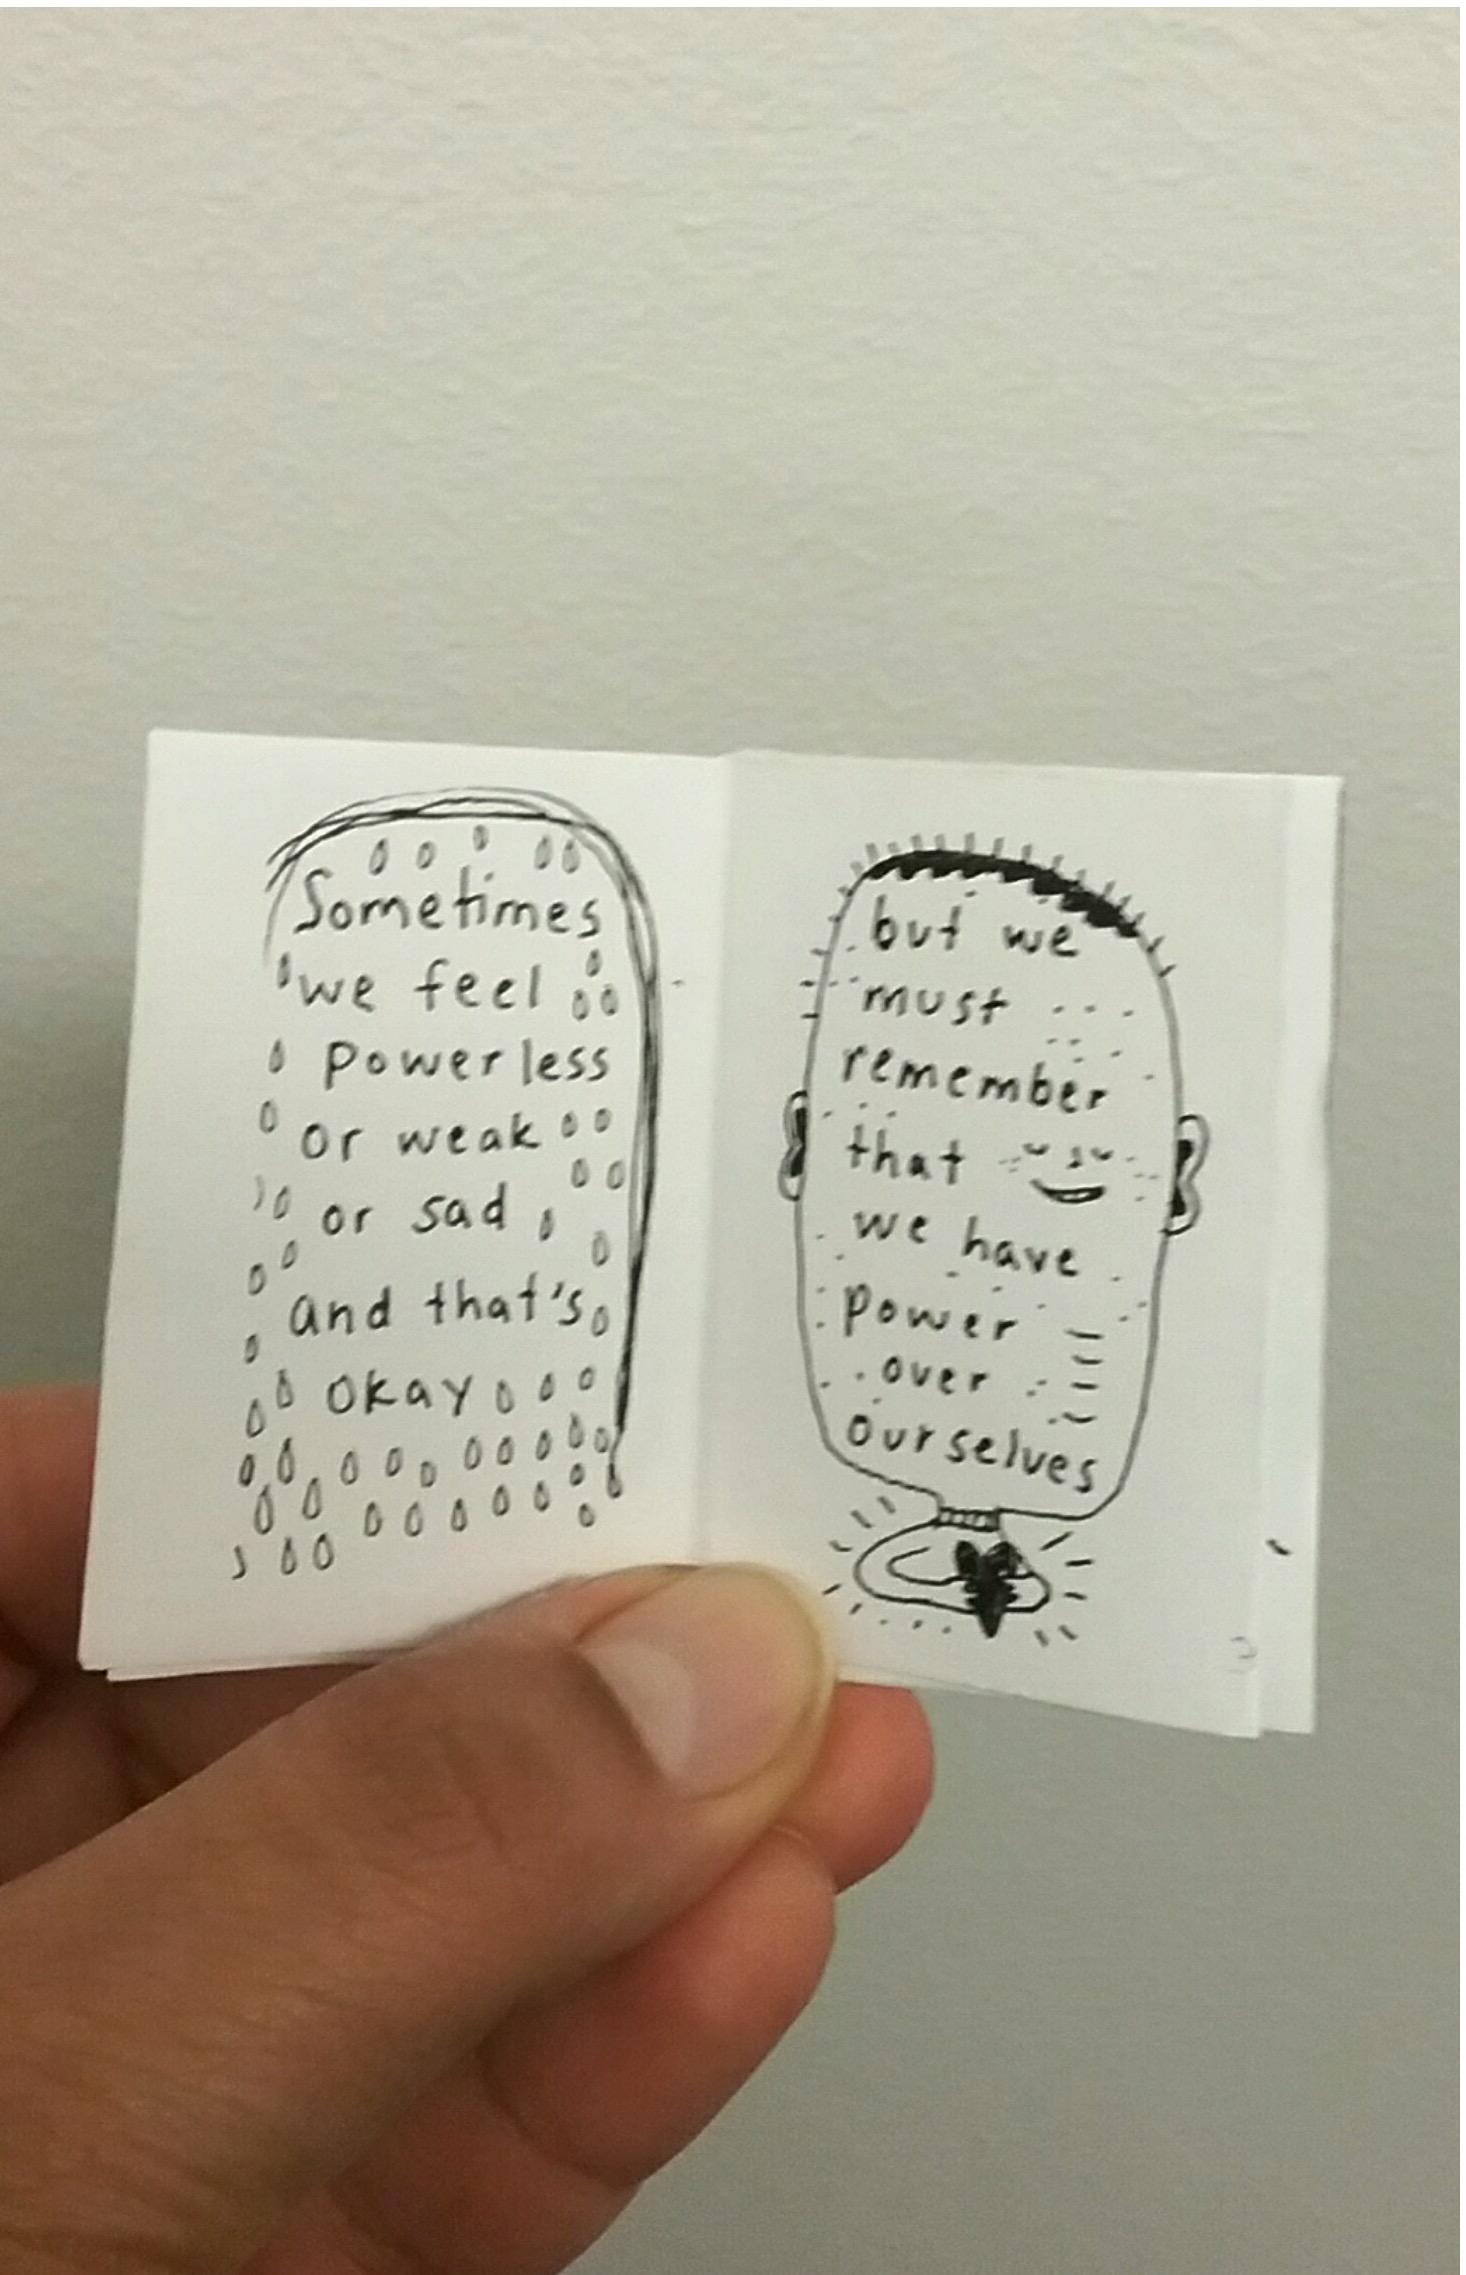 Sometimes
we feel
powerless
or weak
or sad
and that's
okay
but we
must
remember
that
we have
power
over
ourselves